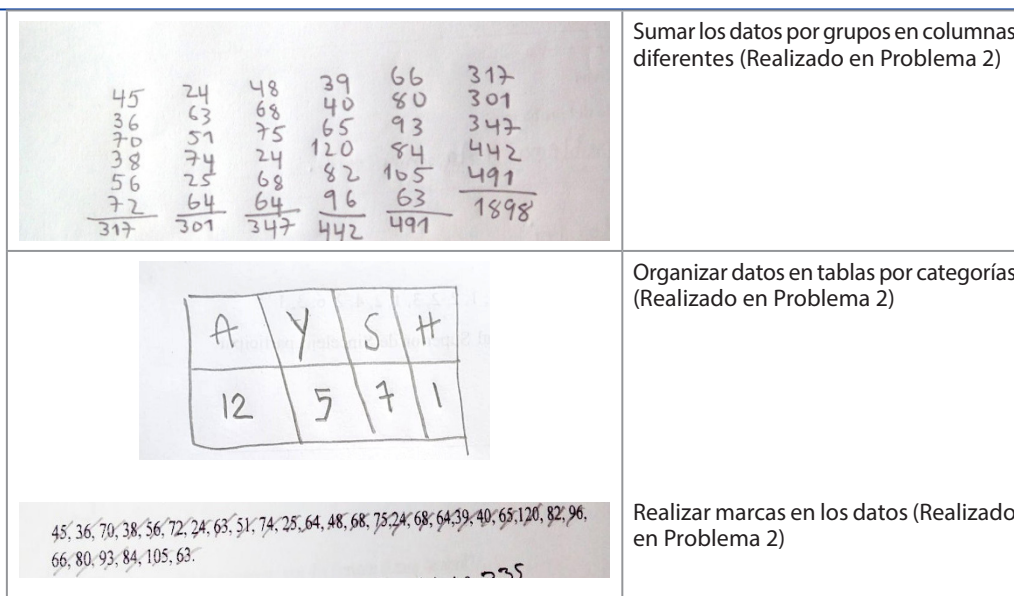 45 24 48 39 66 317
36 63 68 40 80 301
70 51 75 65 93 347
38 74 24 120 84 442
56 25 68 82 105 491
72 64 64 96 63 1898
317 301 347 442 491
Sumar los datos por grupos en columnas
diferentes (Realizado en Problema 2)
A Y S H
12 5 7 1
Organizar datos en tablas por categorías
(Realizado en Problema 2)
45, 36, 70, 38, 56, 72, 24, 63, 51, 74, 25, 64, 48, 68, 75,24, 68, 64,39, 40, 65,120, 82, 96,
66, 80, 93, 84, 105, 63.
Realizar marcas en los datos (Realizado
en Problema 2)